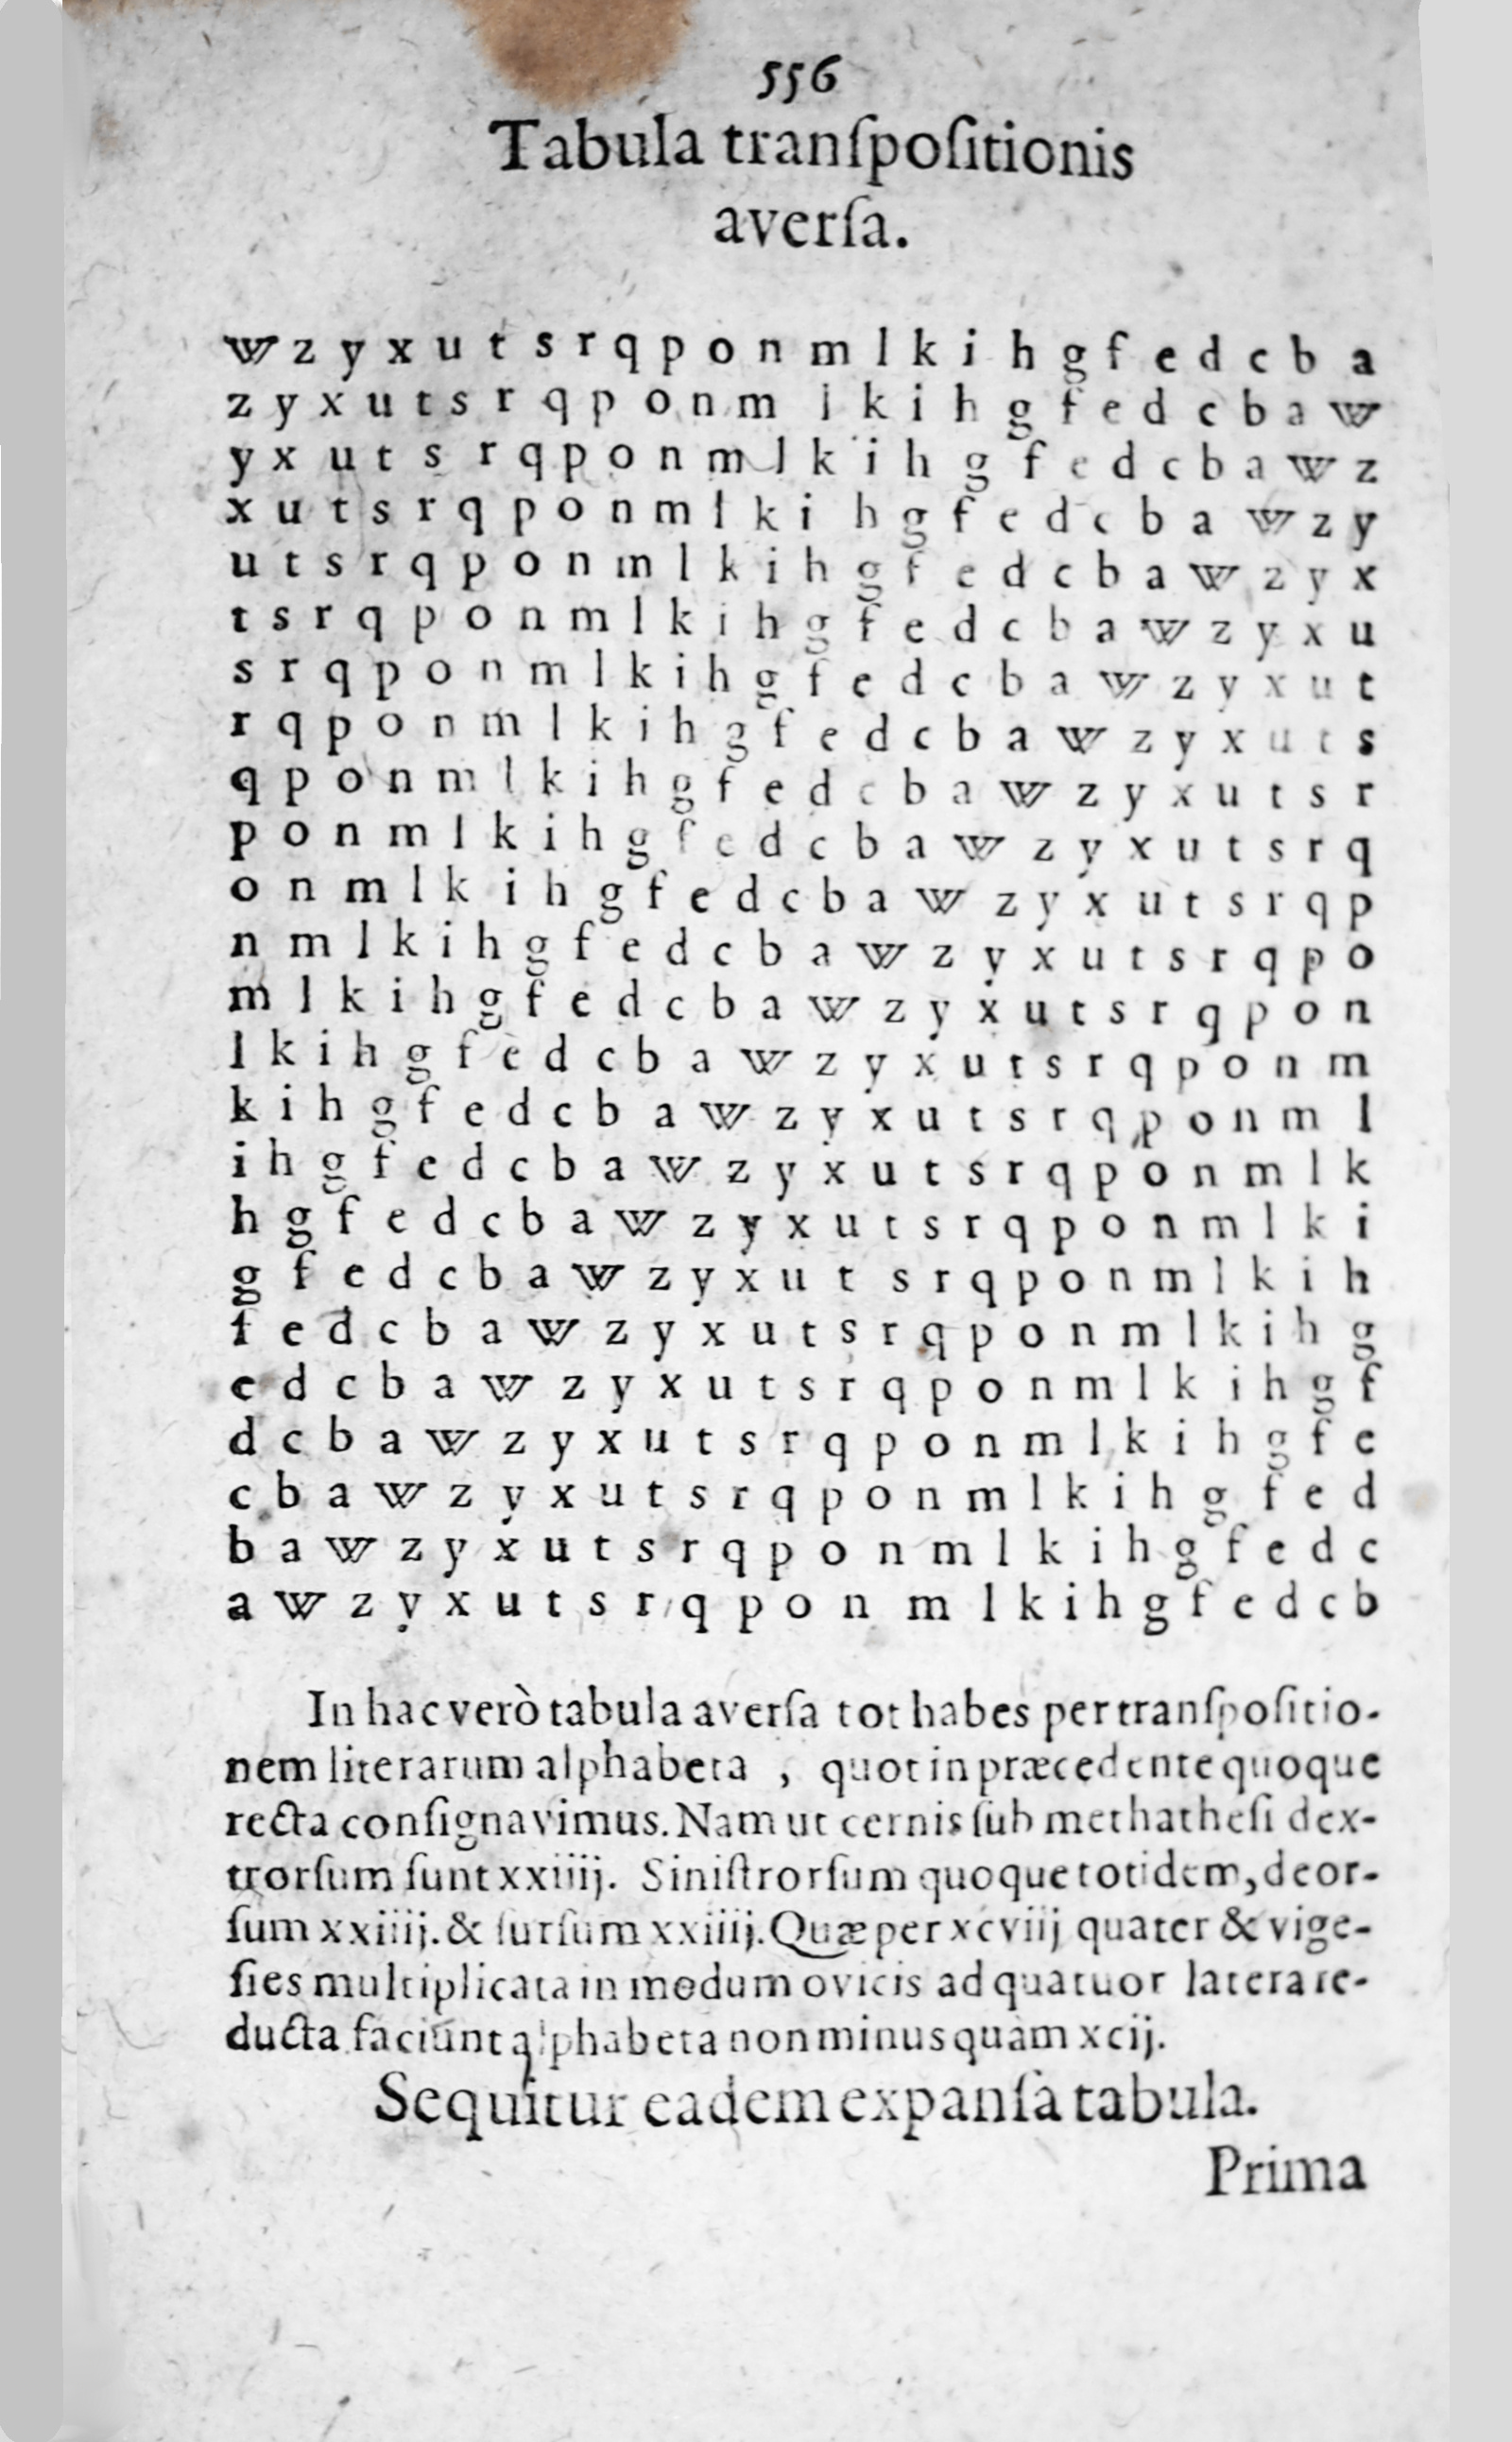 556
Tabula tranſpoſitionis
averſa.
w z y x u t s r q p o n m l k i h g f e d c b a
z y x u t s r q p o n m l k i h g f e d c b a w
y x u t s r q p o n m l k i h g f e d c b a w z
x u t s r q p o n m l k i h g f e d c b a w z y
u t s r q p o n m l k i h g f e d c b a w z y x
t s r q p o n m l k i h g f e d c b a w z y x u
s r q p o n m l k i h g f e d c b a w z y x u t
r q p o n m l k i h g f e d c b a w z y x u t s
q p o n m l k i h g f e d c b a w z y x u t s r
p o n m l k i h g f e d c b a w z y x u t s r q
o n m l k i h g f e d c b a w z y x u t s r q p
n m l k i h g f e d c b a w z y x u t s r q p o
m l k i h g f e d c b a w z y x u t s r q p o n
l k i h g f e d c b a w z y x u t s r q p o n m
k i h g f e d c b a w z y x u t s r q p o n m l
i h g f e d c b a w z y x u t s r q p o n m l k
h g f e d c b a w z y x u t s r q p o n m l k i
g f e d c b a w z y x u t s r q p o n m l k i h
f e d c b a w z y x u t s r q p o n m l k i h g
e d c b a w z y x u t s r q p o n m l k i h g f
d c b a w z y x u t s r q p o n m l k i h g f e
c b a w z y x u t s r q p o n m l k i h g f e d
b a w z y x u t s r q p o n m l k i h g f e d c
a w z y x u t s r q p o n m l k i h g f e d c b
In hac verò tabula averſa tot habes per tranſpoſitio-
nem literarum alphabeta , quot in præcedente quoque
recta conſignavimus. Nam ut cernis ſub methatheſi dex-
trorſum ſunt xxiiij. Siniſtrorſum quoque totidem, deor-
ſum xxiiij. & ſurſum xxiiij. Quæ per xcviij quater & vige-
ſies multiplicata in modum ovicis ad quatuor latera re-
ducta faciunt alphabeta non minus quàm xcij.
Sequitur eadem expanſa tabula.
Prima